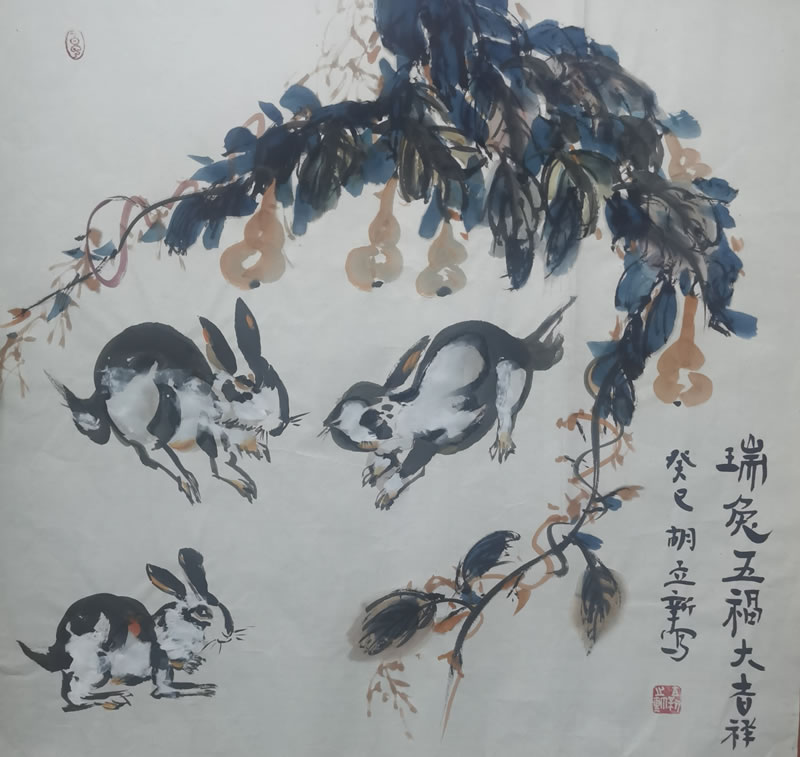 瑞兔五福大吉祥
癸巳胡立新写